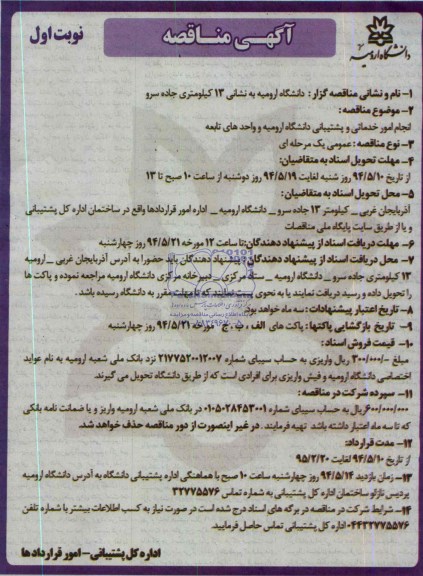 آگهـی منـاقصه
نوبت اول
دانشگاه ارومیه
۱- نام و نشانی مناقصه گزار : دانشگاه ارومیه به نشانی ۱۳ کیلومتری جاده سرو
۲- موضوع مناقصه :
انجام امور خدماتی و پشتیبانی دانشگاه ارومیه و واحد های تابعه
۳- نوع مناقصه : عمومی یک مرحله ای
۴- مهلت تحویل اسناد به متقاضیان:
از تاریخ ۹۴/۵/۱۰ روز شنبه لغایت ۹۴/۵/۱۹ روز دوشنبه از ساعت ۱۰ صبح تا ۱۳
۵- محل تحویل اسناد به متقاضیان:
آذربایجان غربی _ کیلومتر ۱۳ جاده سرو _ دانشگاه ارومیه _ اداره امور قراردادها واقع در ساختمان اداره کل پشتیبانی
و یا از طریق سایت پایگاه ملی مناقصات
۶- مهلت دریافت اسناد از پیشنهاد دهندگان:تا ساعت ۱۲ مورخه ۹۴/۵/۲۱ روز چهارشنبه
۷- محل دریافت اسناد از پیشنهاد دهندگان: پیشنهاد دهندگان باید حضورا به آدرس آذربایجان غربی _ ارومیه
۱۳ کیلومتری جاده سرو _ دانشگاه ارومیه _ ستاد مرکزی _ دبیرخانه مرکزی دانشگاه ارومیه مراجعه نموده و پاکت ها
را تحویل داده و رسید دریافت نمایند یا به نحوی پست نمایند که تا مهلت مقرر به دانشگاه رسیده باشد .
۸- تاریخ اعتبار پیشنهادات: سه ماه خواهد بود.
۹- تاریخ بازگشایی پاکتها : پاکت های الف ، ب ، ج مورخه ۹۴/۵/۲۱ روز چهارشنبه
۱۰- قیمت فروش اسناد :
مبلغ -/۳۰۰/۰۰۰ ریال واریزی به حساب سیبای شماره ۲۱۷۷۵۲۰۰۱۲۰۰۷ نزد بانک ملی شعبه ارومیه به نام عواید
اختصاصی دانشگاه ارومیه و فیش واریزی برای افرادی است که از طریق دانشگاه تحویل می گیرند.
۱۱- سپرده شرکت در مناقصه :
۶۰۰/۰۰۰/۰۰۰ریال به حساب سیبای شماره ۰۱۰۵۰۲۸۴۵۳۰۰۱ در بانک ملی شعبه ارومیه واریز و یا ضمانت نامه بانکی
که تا سه ماه اعتبار داشته باشد تهیه فرمایند . در غیر اینصورت از دور مناقصه حذف خواهد شد.
۱۲- مدت قرارداد:
از تاریخ ۹۴/۵/۱۰ لغایت ۹۵/۲/۲۰
۱۳- زمان بازدید ۹۴/۵/۱۴ روز چهارشنبه ساعت ۱۰ صبح با هماهنگی اداره پشتیبانی دانشگاه به آدرس دانشگاه ارومیه
پردیس نازلو ساختمان اداره کل پشتیبانی به شماره تماس ۳۲۷۷۵۵۷۶
۱۴- شرایط شرکت در مناقصه در برگه های اسناد درج شده است در صورت نیاز به کسب اطلاعات بیشتر با شماره تلفن
۰۴۴۳۲۷۷۵۵۷۶ اداره کل پشتیبانی تماس حاصل فرمایید.
اداره کل پشتیبانی- امور قراردادها